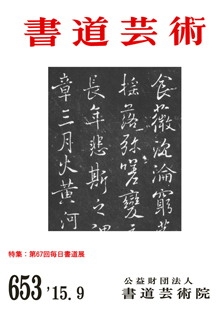 書道芸術
食薇沈淪窮
摇落弥嗟變
長年悲斯之謂
章三月火黄河
特集：第67回毎日書道展
653 '15.9
公益財団法人
書道芸術院